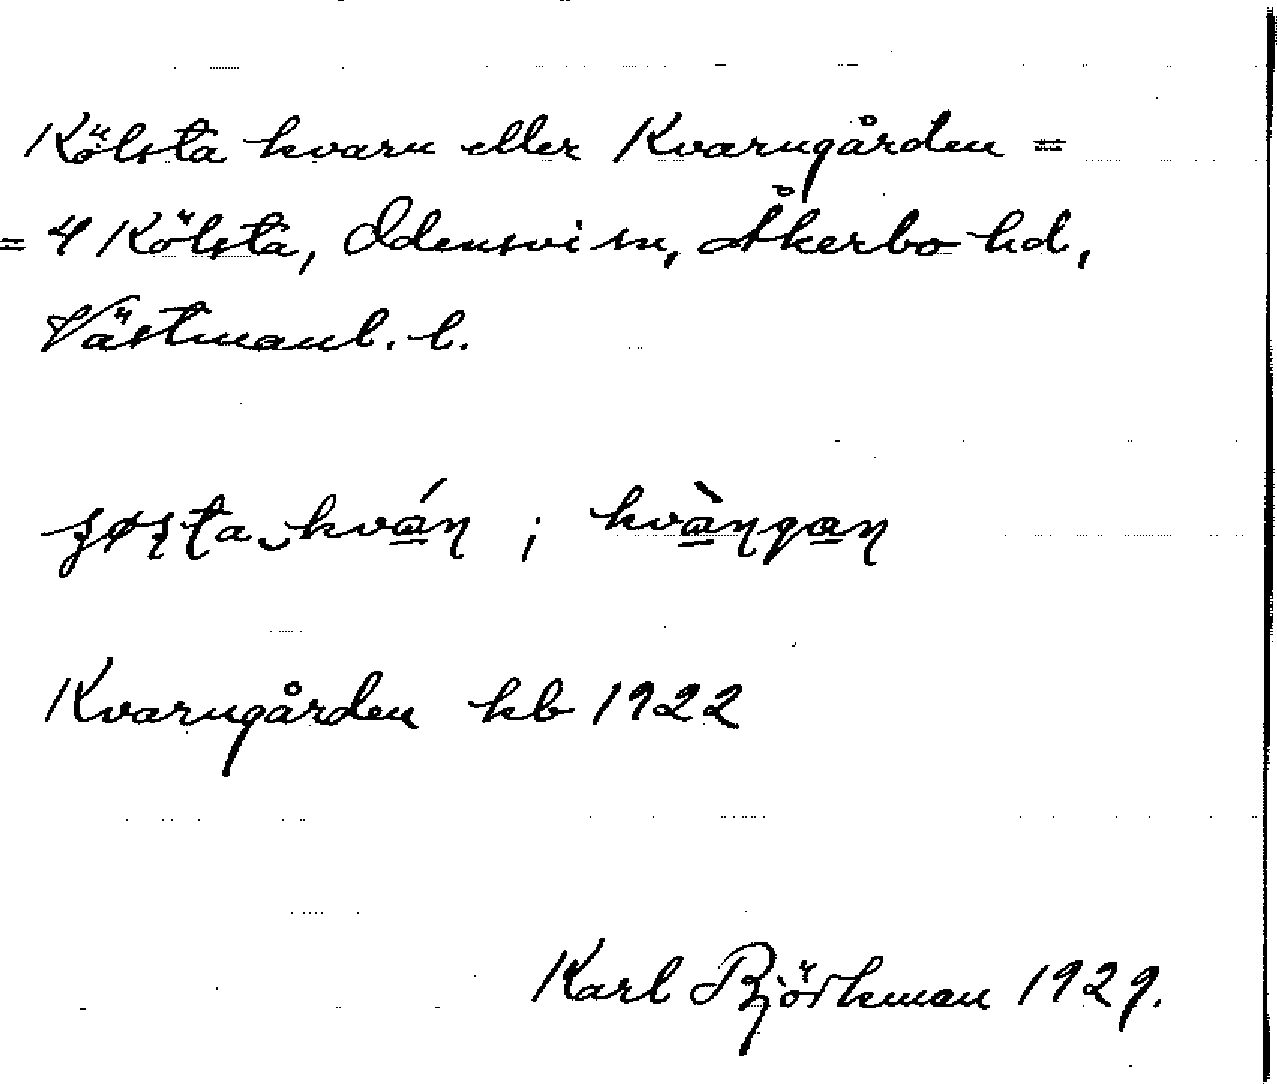 Kölsta kvarn eller Kvarngården =
= 4 Kölsta, Odensvi sn, Åkerbo hd,
Västmanl. l.
kvá̱ɳ ; kvà̱ɳga̱ɳ
Kvarngården kb 1922
Karl Björkman 1929.